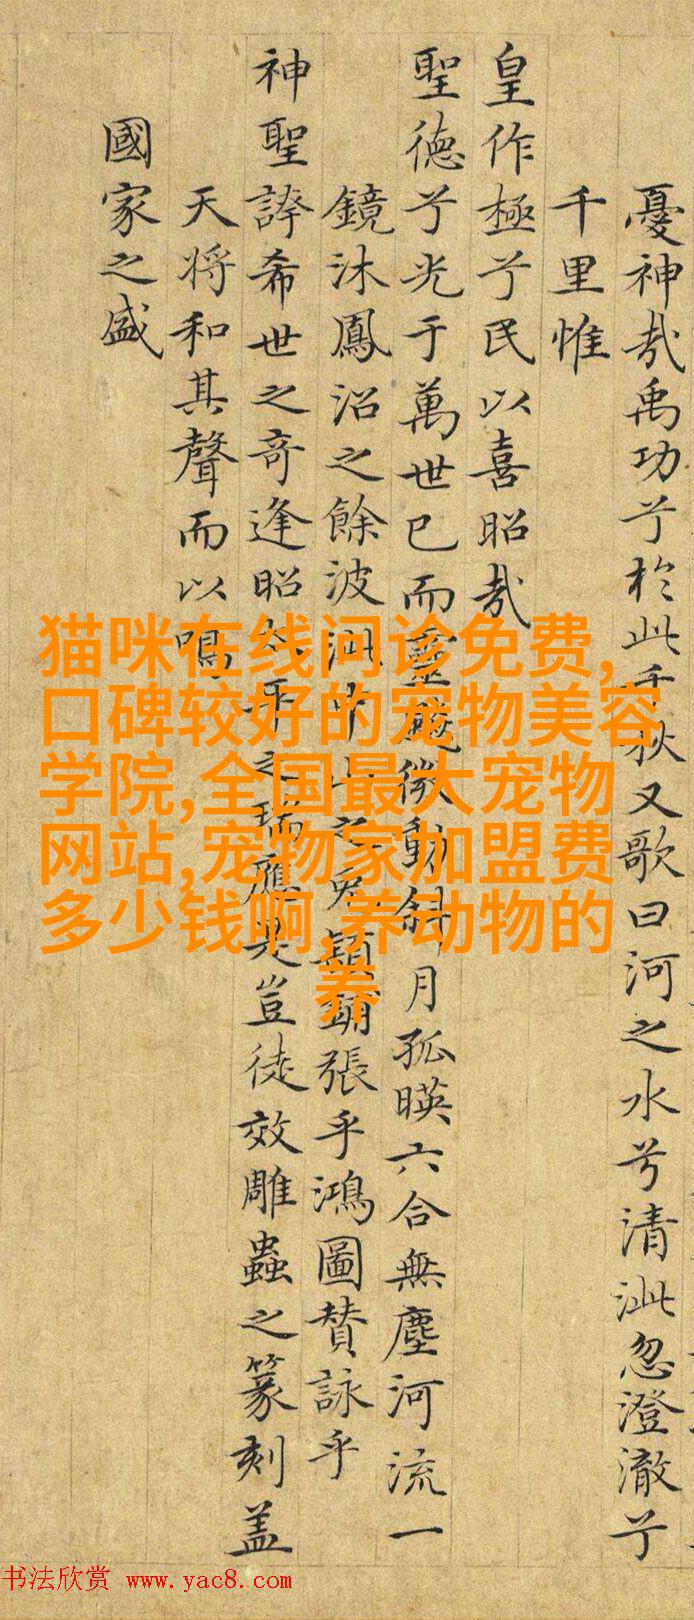 憂神哉禹功兮於此千秋又歌曰河之水兮清泚忽澄澈兮
千里惟
皇作極兮民以喜昭哉
聖德兮光于萬世已而靈飈微動斜月孤暎六合無塵河流一
鏡沐鳳沼之餘波泚之兔穎鋪張乎鴻圖贊詠乎
神聖誇希世之奇逢昭太平之瑞應是豈徒效雕蟲之篆刻盖
天将和其聲而以鳴
國家之盛
猫咪在线问诊免费,
口碑较好的宠物美容
学院,全国最大宠物
网站,宠物家加盟费
多少钱啊,养动物的
养
书法欣赏 www.yac8.com